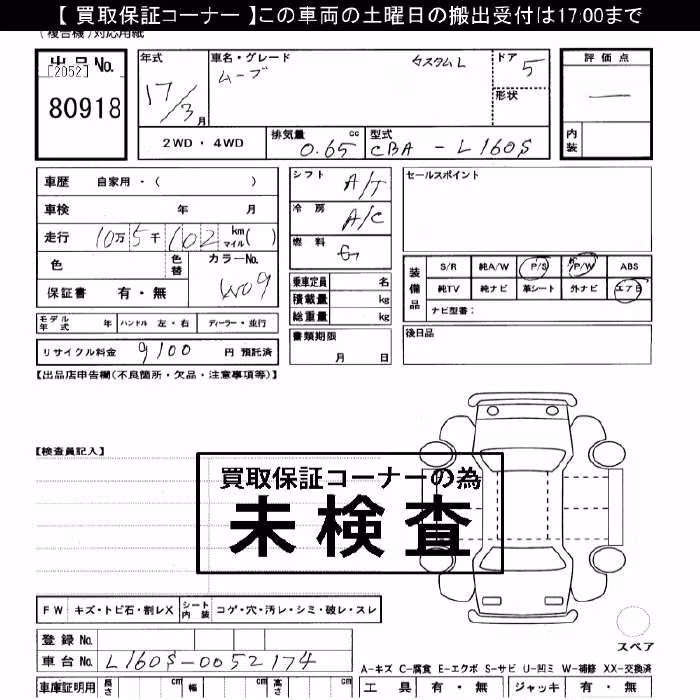 【 買取保証コーナー 】この車両の土曜日の搬出受付は17:00まで
(複合機)対応用紙
出品No.
[2052]
80918
年式 17/3 月
車名・グレード ムーブ カスタムL
ドア 5
形状
評価点 —
内装
2WD・4WD
排気量 0.65 cc
型式 CBA - L160S
車歴 自家用・( )
車検 年 月
走行 10万 5千 102 km マイル( )
色 色替 カラーNo. W09
保証書 有・無
シフト A/T
冷房 A/C
燃料 G
乗車定員 名
積載量 kg
総重量 kg
書類期限 月 日
セールスポイント
装備品
S/R 純A/W P/S P/W ABS
純TV 純ナビ 革シート 外ナビ エアB
ナビ型番:
後日品
モデル年式 年 ハンドル 左・右 ディーラー・並行
リサイクル料金 9100 円 預託済
【出品店申告欄(不良箇所・欠品・注意事項等)】
【検査員記入】
買取保証コーナーの為
未検査
FW キズ・トビ石・割レX シート内装 コゲ・穴・汚レ・シミ・破レ・スレ
登録No.
車台No. L160S-0052174
スペア
A-キズ C-腐食 E-エクボ S-サビ U-凹ミ W-補修 XX-交換済
車庫証明用 長さ cm 幅 cm 高さ cm
工具 有・無 ジャッキ 有・無